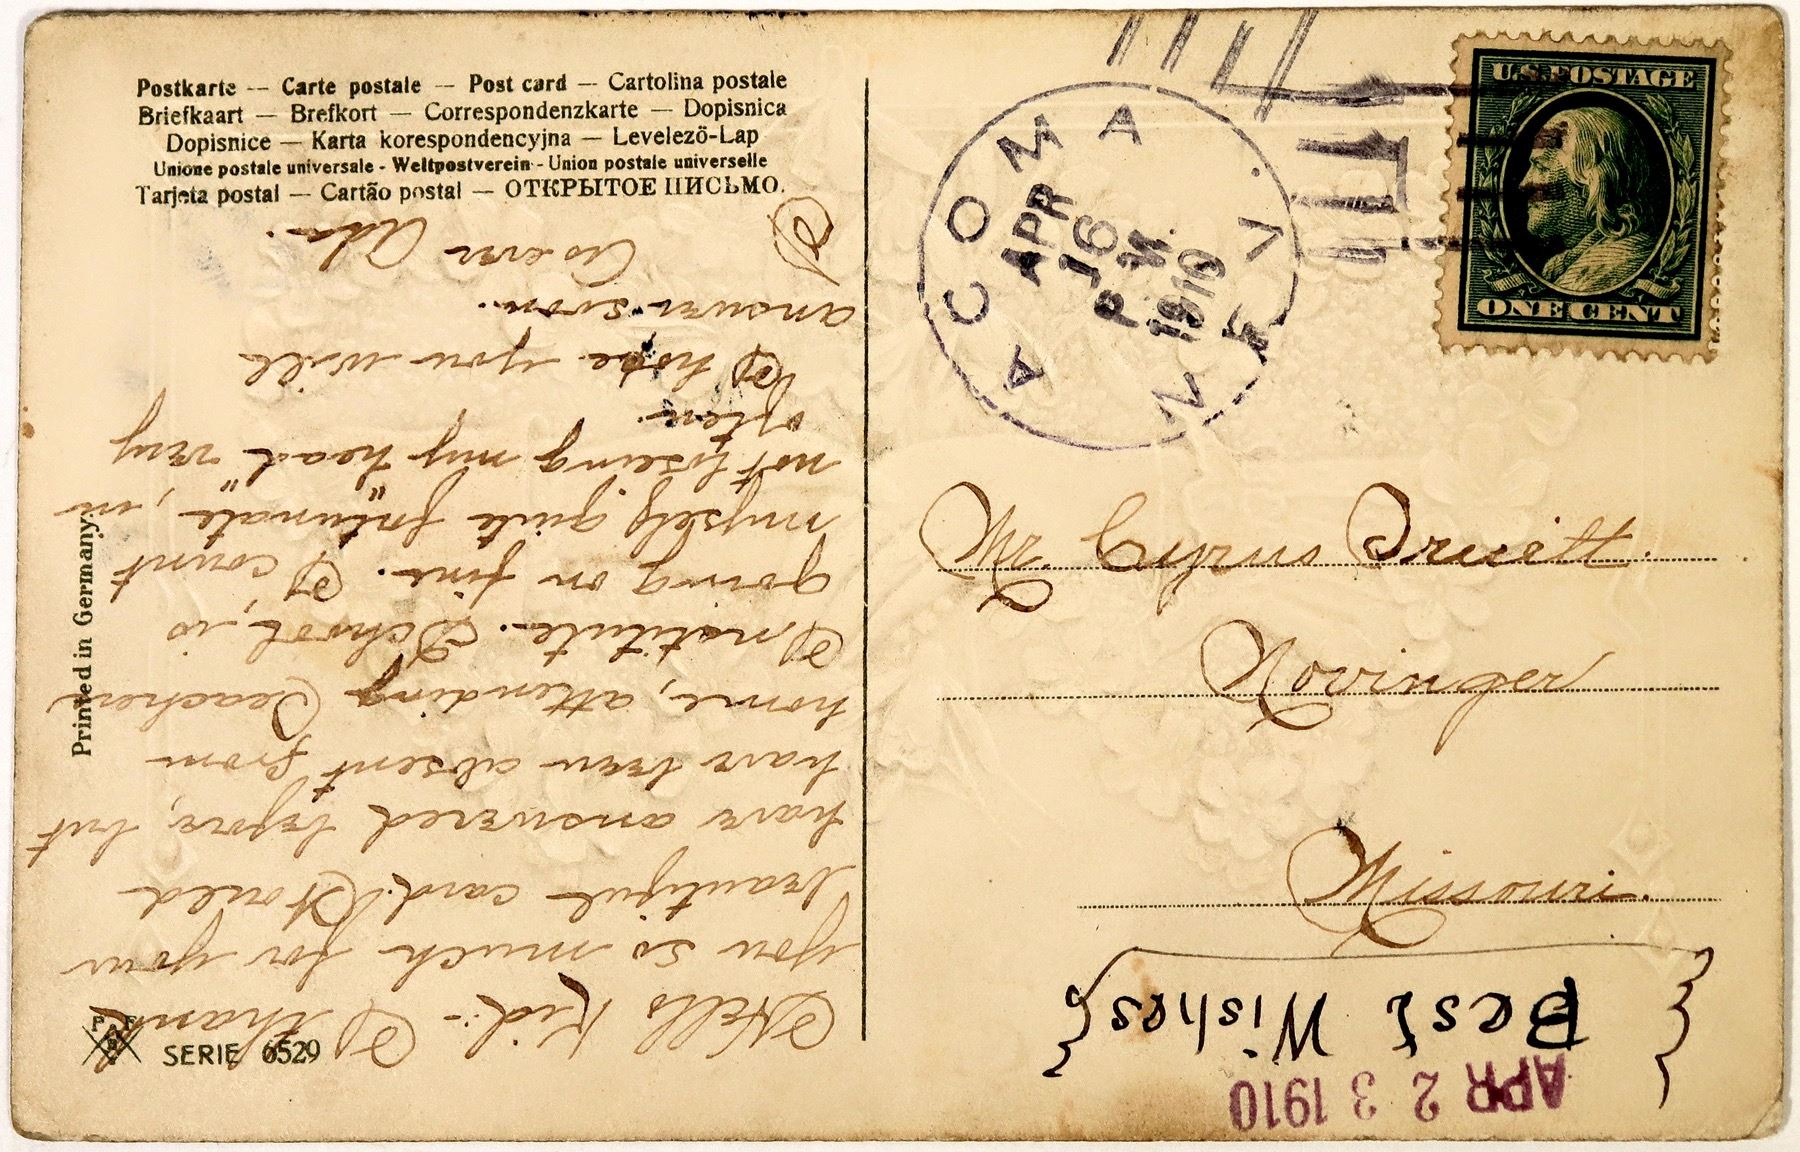 Postkarte — Carte postale — Post card — Cartolina postale
Briefkaart — Brefkort — Correspondenzkarte — Dopisnica
Dopisnice — Karta korespondencyjna — Levelező-Lap
Unione postale universale - Weltpostverein - Union postale universelle
Tarjeta postal — Cartão postal — ОТКРЫТОЕ ПИСЬМО.
Printed in Germany.
SERIE 6529
Hello Kid:- I thank
you so much for your
beautiful card. Would
have answered before, but
have been absent from
home, attending Teachers
Institute. School, is
going on fine. I count
myself quite "fortunate", in
not loseing my head very
often.
I hope you will
answer soon.
As ever Ada.
ACOMA NEV.
APR
16
P M.
1910
U.S. POSTAGE
ONE CENT
Mr. Cyrus Pruett.
Novinger
Missouri.
{Best Wishes}
APR 23 1910